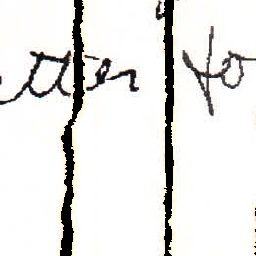 etter fo